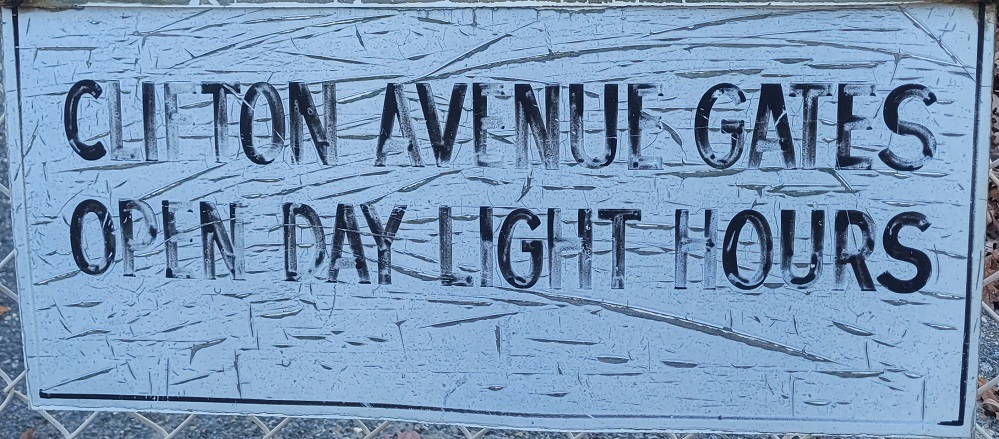 CLIFTON AVENUE GATES
OPEN DAY LIGHT HOURS